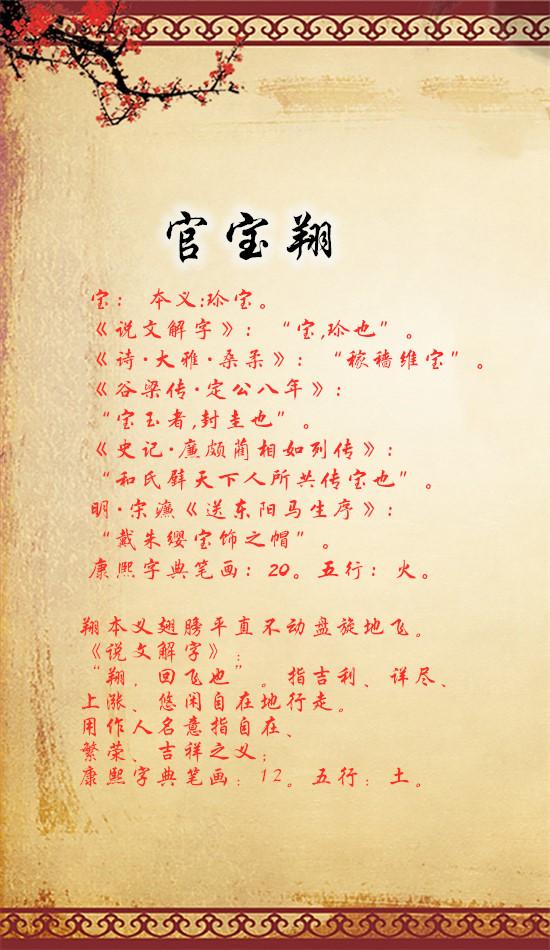 官宝翔
宝： 本义:珍宝。
《说文解字》：“宝,珍也”。
《诗·大雅·桑柔》：“稼穑维宝”。
《谷梁传·定公八年》：
“宝玉者,封圭也”。
《史记·廉颇蔺相如列传》：
“和氏璧天下人所共传宝也”。
明·宋濂《送东阳马生序》：
“戴朱缨宝饰之帽”。
康熙字典笔画：20。五行：火。
翔本义翅膀平直不动盘旋地飞。
《说文解字》：
“翔，回飞也”。指吉利、详尽、
上涨、悠闲自在地行走。
用作人名意指自在、
繁荣、吉祥之义；
康熙字典笔画：12。五行：土。